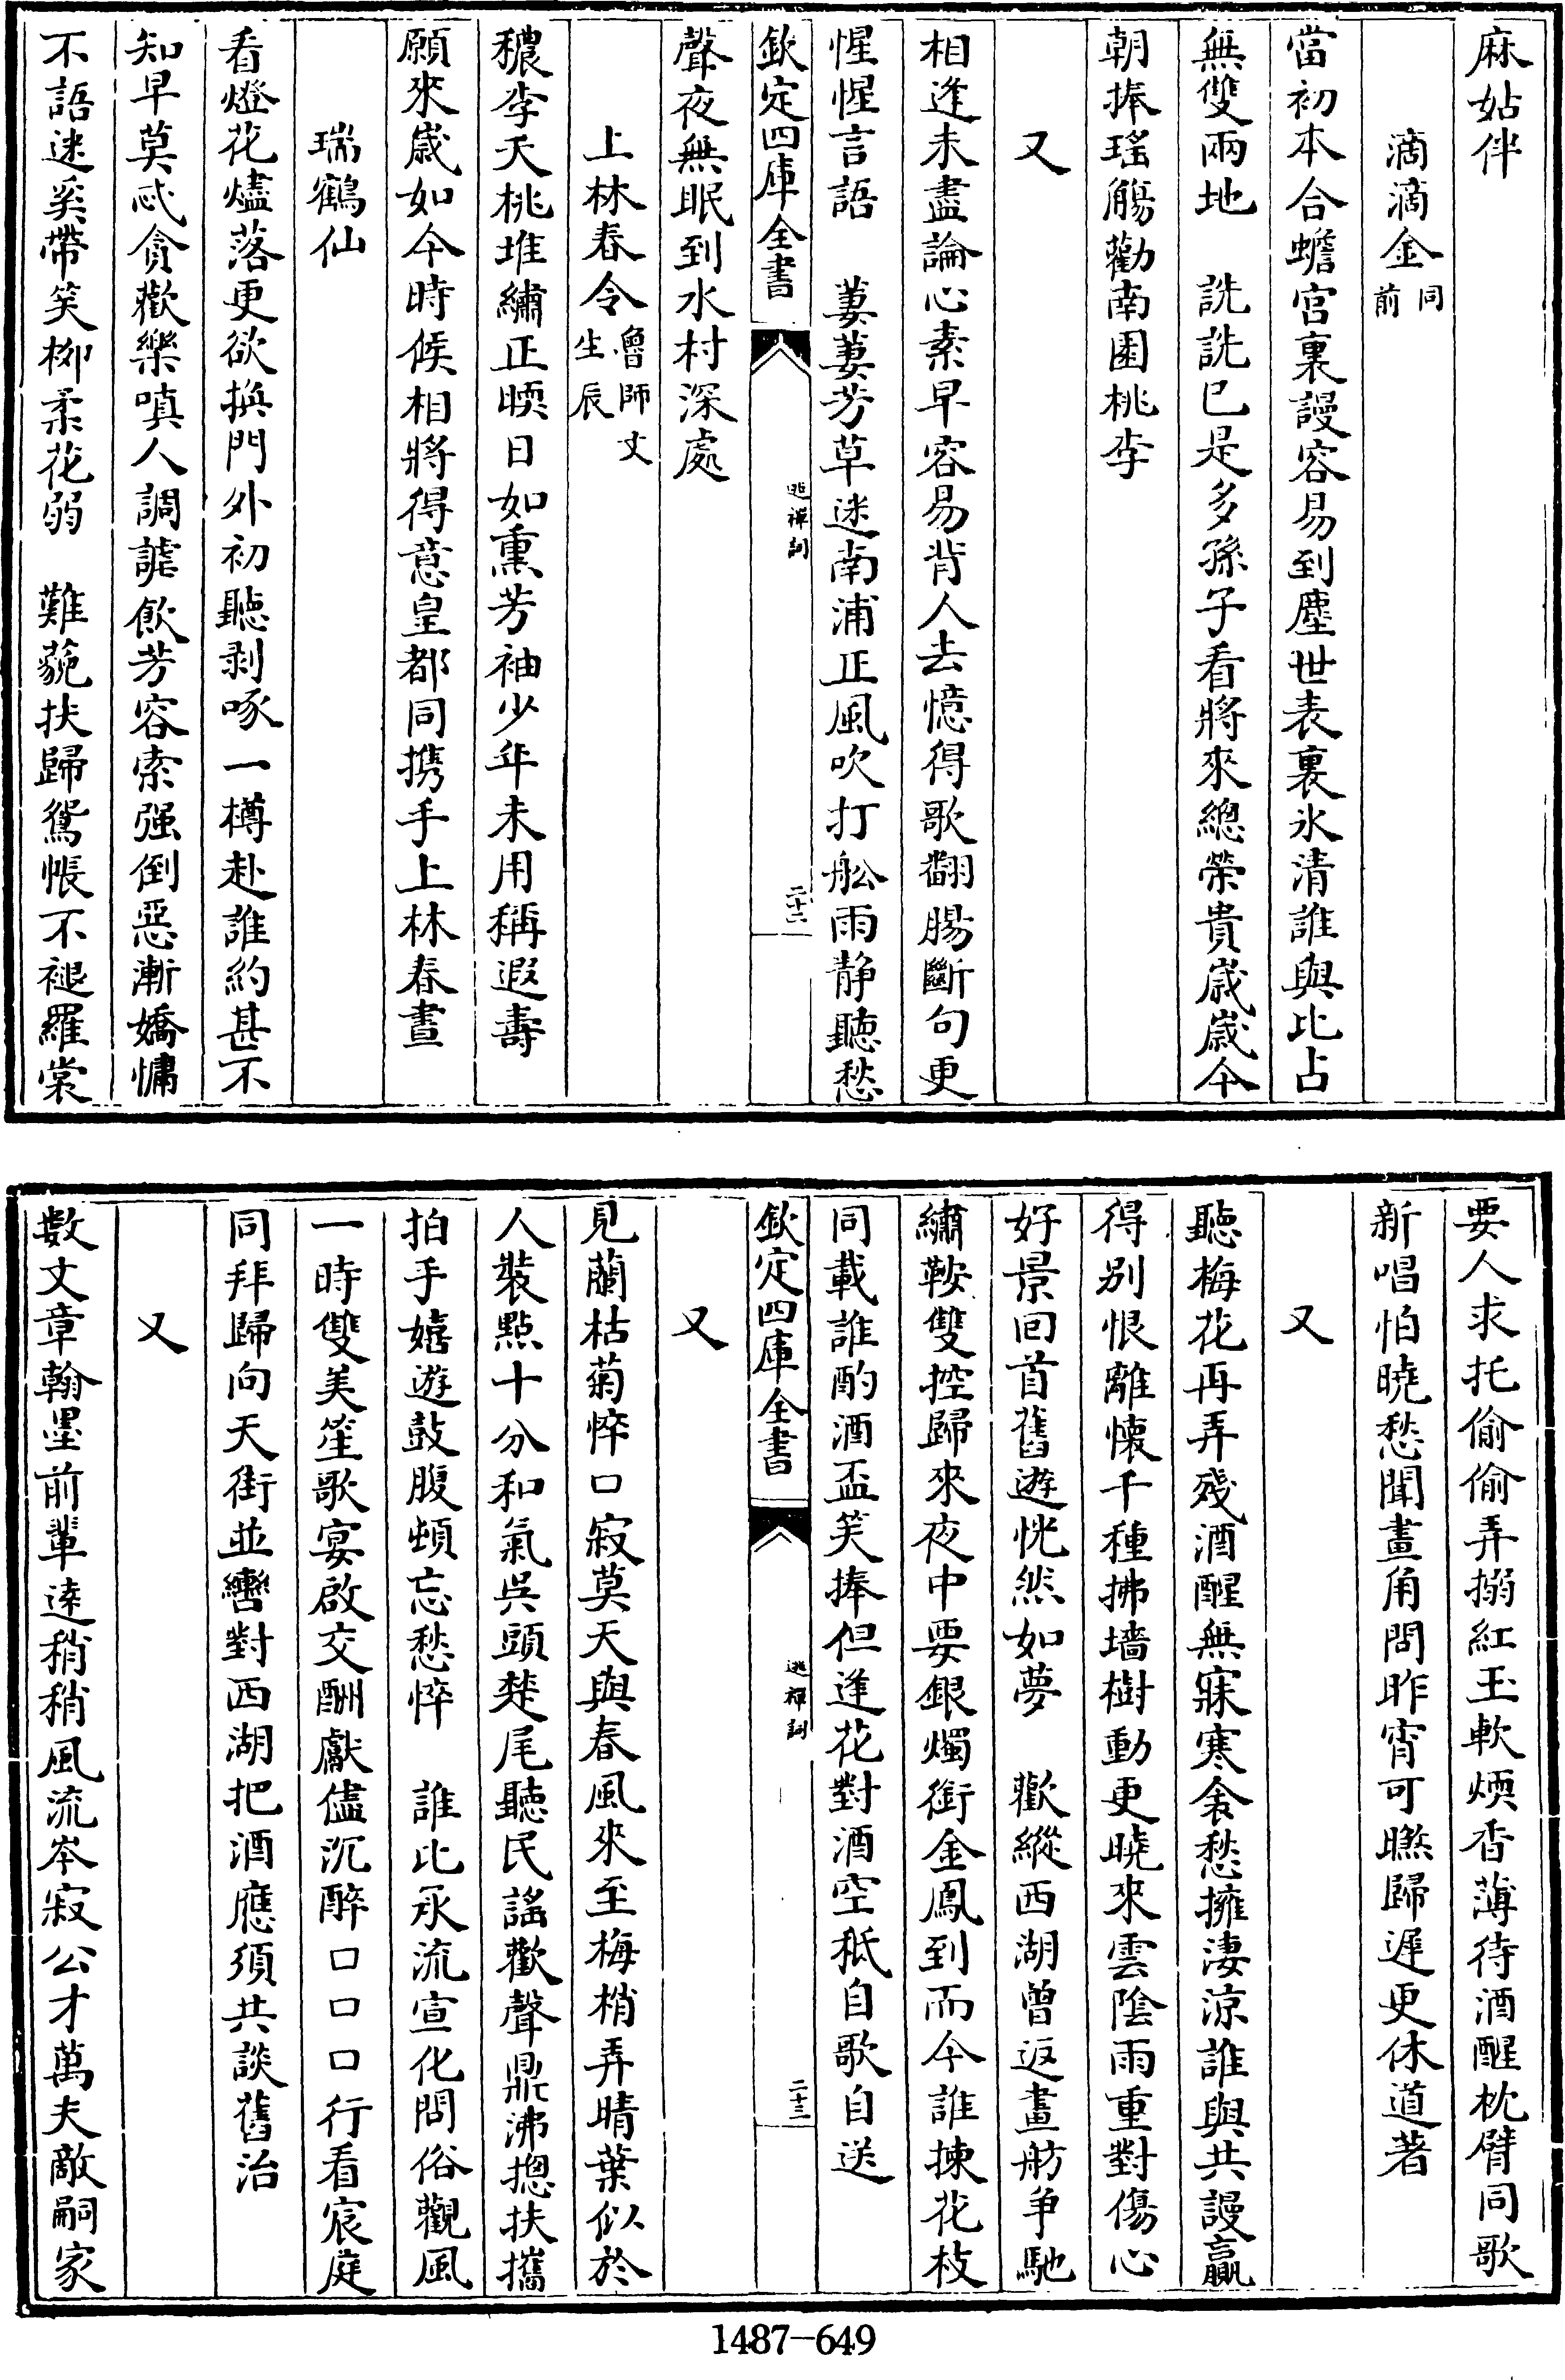 麻姑伴
滴滴金同前
當初本合蟾宫裏謾容易到塵世表裏氷清誰與比占
無雙兩地　詵詵已是多孫子看將來總榮貴歲歲今
朝捧瑤觴勸南園桃李
又
相逢未盡論心素早容易背人去憶得歌翻腸斷句更
惺惺言語　萋萋芳草迷南浦正風吹打舩雨静聽愁
欽定四庫全書
逃禪詞
二十二
聲夜無眠到水村深處
上林春令魯師文生辰
穠李夭桃堆繡正暖日如熏芳袖少年未用稱遐壽
願來歲如今時候相將得意皇都同携手上林春晝
瑞鶴仙
看燈花燼落更欲換門外初聽剥啄一樽赴誰約甚不
知早莫忒貪歡樂嗔人調謔飲芳容索强倒惡漸嬌慵
不語迷奚帶笑柳柔花弱　難藐扶歸鴛帳不褪羅裳
要人求托偷偷弄搦紅玉軟煗香薄待酒醒枕臂同歌
新唱怕曉愁聞畫角問昨宵可曬歸遲更休道著
又
聽梅花再弄殘酒醒無寐寒衾愁擁淒涼誰與共謾贏
得別恨離懐千種拂墻樹動更曉來雲陰雨重對傷心
好景回首舊遊恍然如夢　歡縱西湖曾返畫舫争馳
繡鞍雙控歸來夜中要銀燭銜金鳳到而今誰揀花枝
同載誰酌酒盃笑捧但逢花對酒空秪自歌自送
欽定四庫全書
逃禪詞
二十三
又
見蘭枯菊悴口寂莫天與春風來至梅梢弄晴葉似於
人裝點十分和氣吳頭楚尾聽民謡歡聲鼎沸摠扶攜
拍手嬉遊鼓腹頓忘愁悴　誰比承流宣化問俗觀風
一時雙美笙歌宴啟交酬獻儘沉醉口口口行看宸庭
同拜歸向天街並轡對西湖把酒應須共談舊治
又
數文章翰墨前輩逺稍稍風流岑寂公才萬夫敵嗣家
1487-649